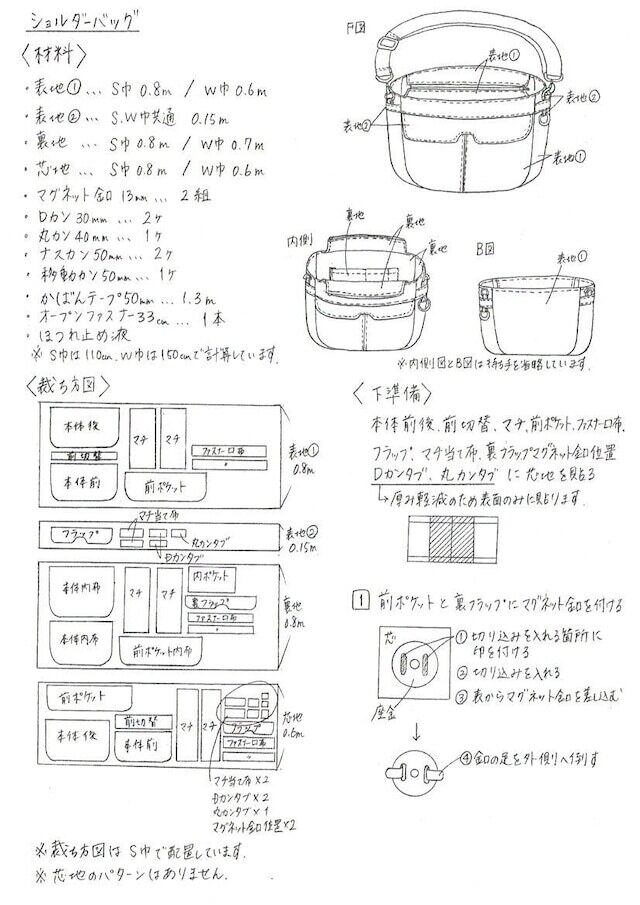 ショルダーバッグ
〈材料〉
・表地① … S巾 0.8m / W巾 0.6m
・表地② … S.W巾共通 0.15m
・裏地 … S巾 0.8m / W巾 0.7m
・芯地 … S巾 0.8m / W巾 0.6m
・マグネット釦 13mm … 2組
・Dカン30mm … 2ケ
・丸カン40mm … 1ケ
・ナスカン50mm … 2ケ
・移動カン50mm … 1ケ
・かばんテープ50mm … 1.3m
・オープンファスナー33cm … 1本
・ほつれ止め液
※S巾は110cm、W巾は150cmで計算しています。
F図
表地①
表地②
表地②
表地①
内側
裏地
裏地
裏地
B図
表地①
※内側図とB図は持ち手を省略しています。
〈裁ち方図〉
本体後
前切替
本体前
マチ
マチ
前ポケット
ファスナー口布
〃
表地①
0.8m
マチ当て布
フラップ
丸カンタブ
Dカンタブ
表地②
0.15m
本体内布
本体内布
マチ
マチ
前ポケット内布
内ポケット
裏フラップ
ファスナー口布
〃
裏地
0.8m
前ポケット
本体後
前切替
本体前
マチ
マチ
フラップ
ファスナー口布
〃
芯地
マチ当て布×2
Dカンタブ×2
丸カンタブ×1
マグネット釦位置×2
※裁ち方図はS巾で配置しています。
※芯地のパターンはありません。
〈下準備〉
本体前後、前切替、マチ、前ポケット、ファスナー口布、
フラップ、マチ当て布、裏フラップマグネット釦位置
Dカンタブ、丸カンタブに芯地を貼る
→厚み軽減のため表面のみに貼ります。
1 前ポケットと裏フラップにマグネット釦を付ける
芯
座金
①切り込みを入れる箇所に
印を付ける
②切り込みを入れる
③表からマグネット釦を差し込む
④釦の足を外側へ倒す